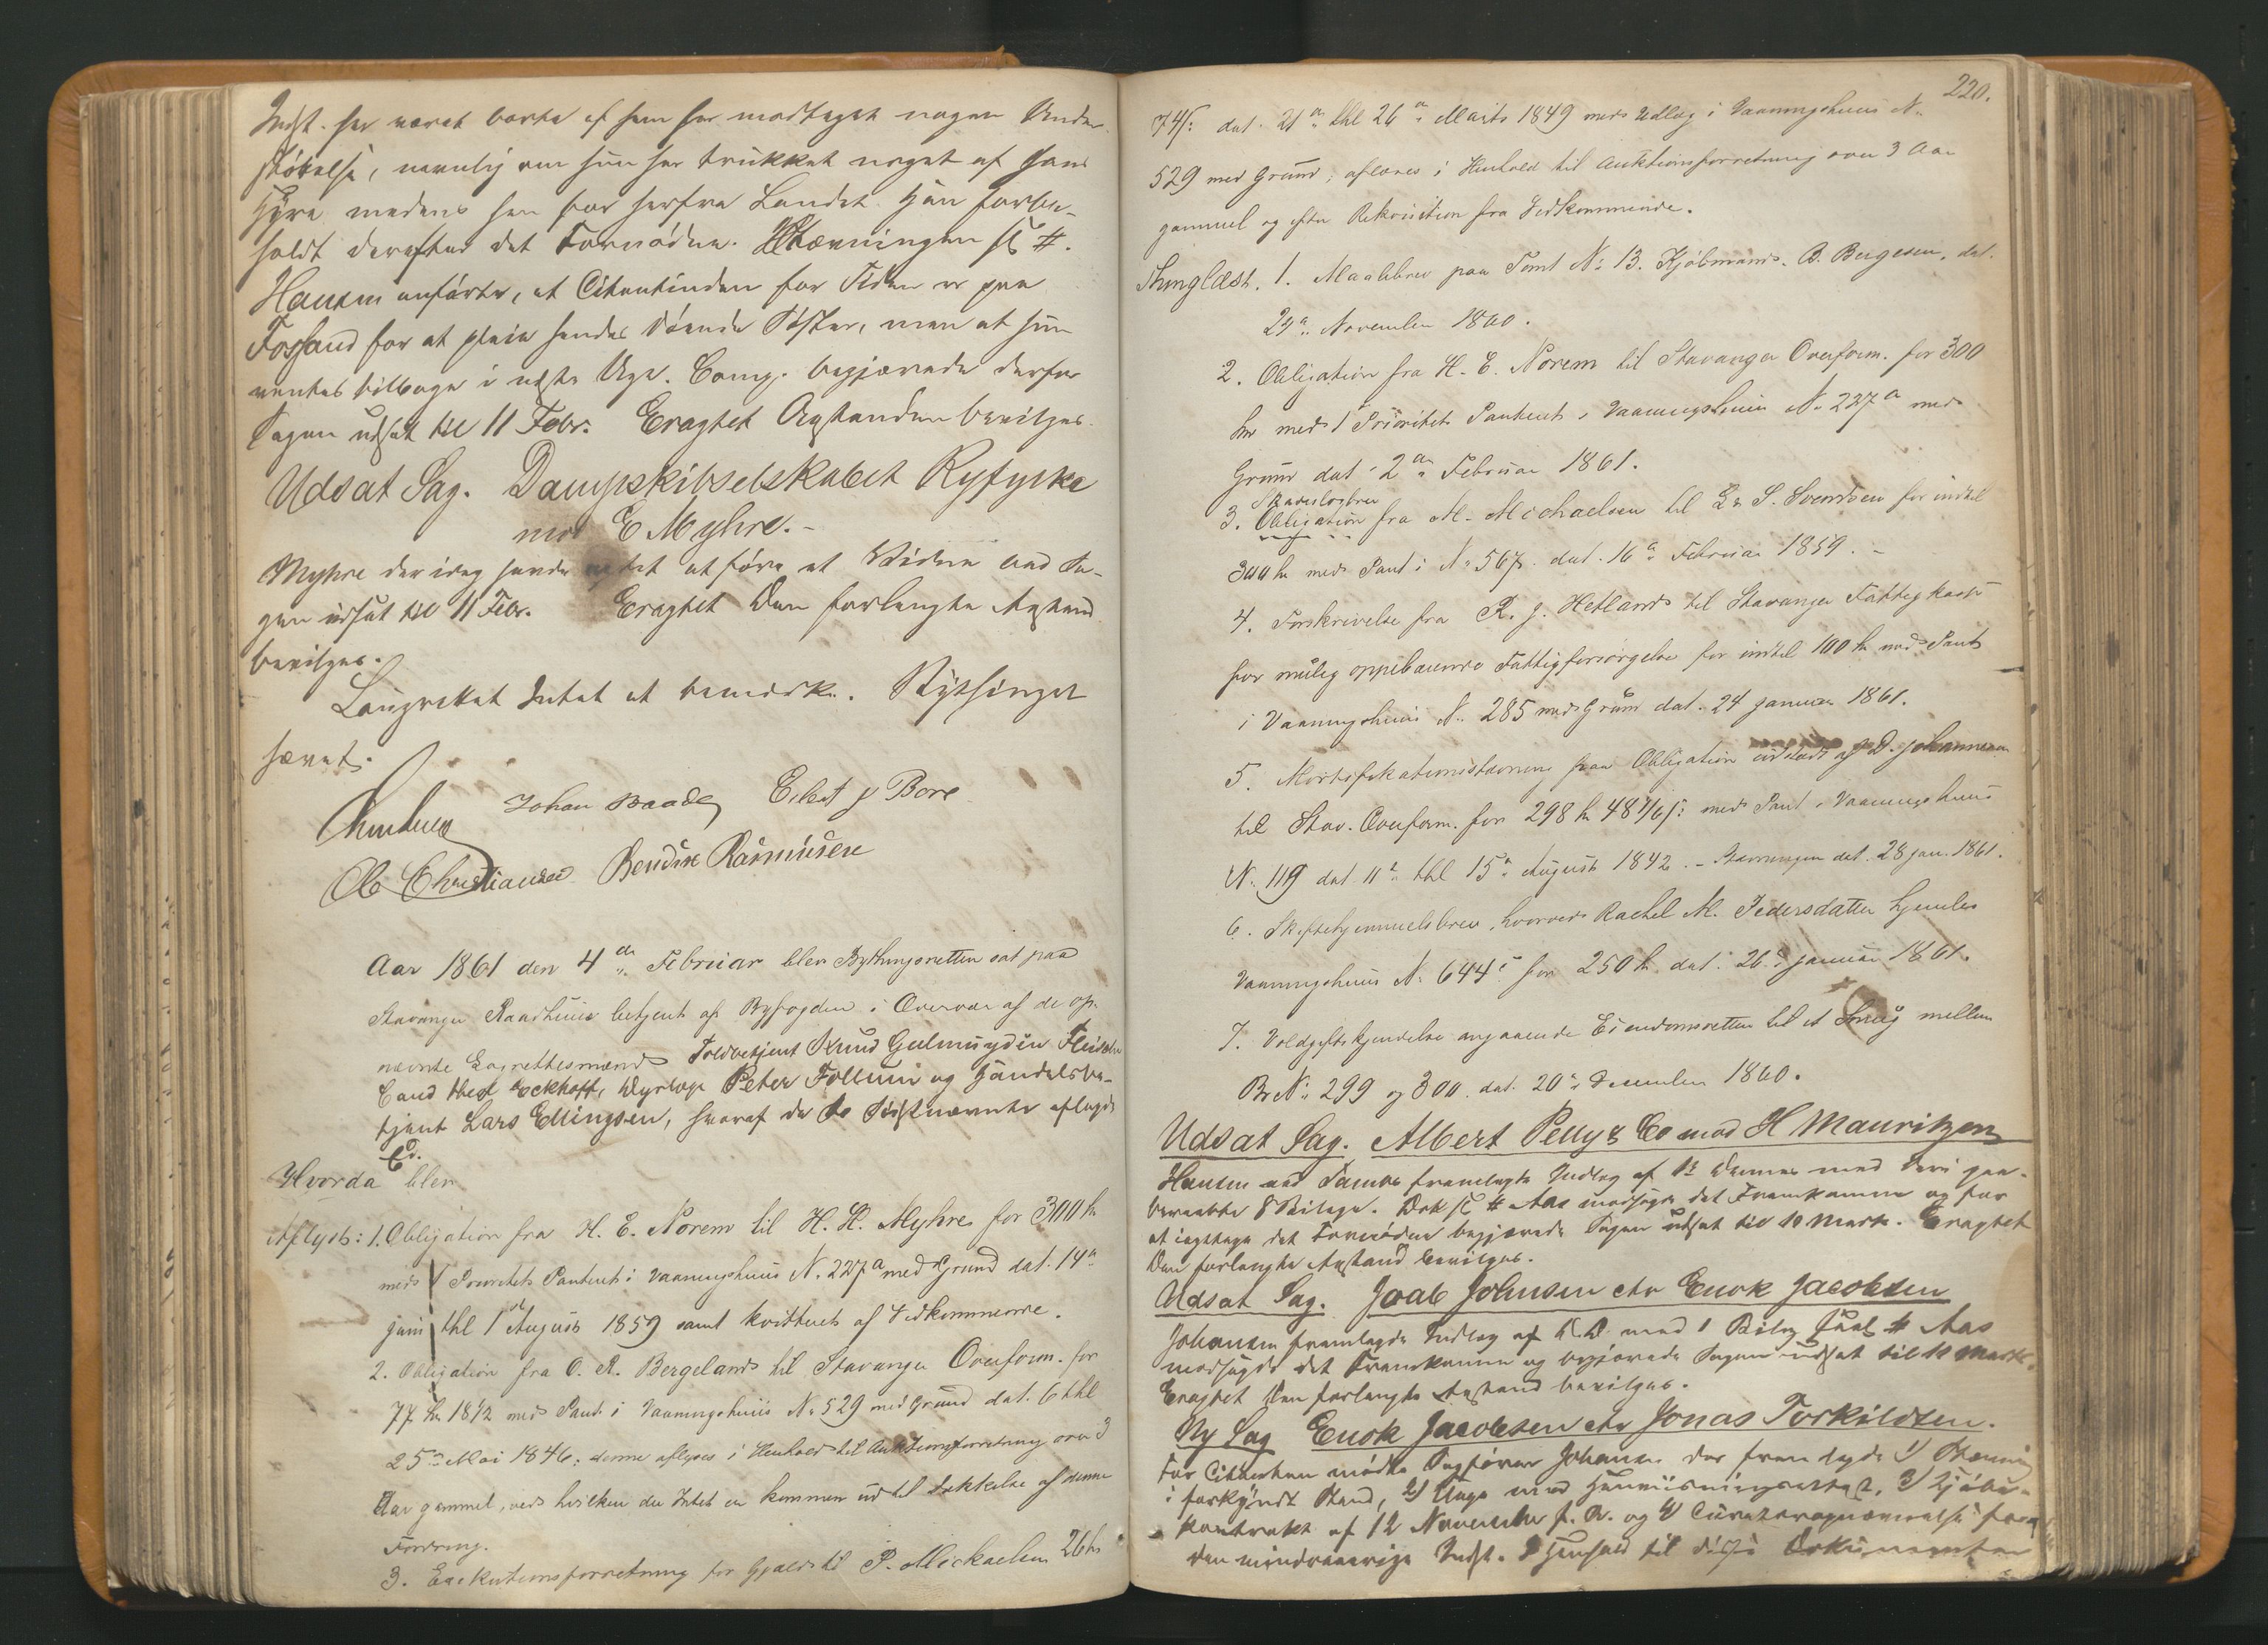 Indst. har været borte af ham har modtaget nogen Under-
støttelse, navnlig om hun har trukket noget af hans
Hyre medens han var herfra Landet. Han forbe-
holdt derefter det Fornødne. Stævningen
Hansen anførte, at Citantinden for Tiden er paa
Fossand for at pleie hendes døende Søster, men at hun
ventes tilbage i næste Uge. Comp. begjærede derfor
Sagen udsat til 11 Febr. Eragtet Anstanden bevilges.
Udsat Sag. Dampskibselskabet Ryfylke
mod E Myhre.-
Myhre der idag havde at føre et Vidne bad Sa-
gen udsat til 11 Febr. Eragtet Den forlangte Anstand
bevilges.
Laugrettet Intet at bemærke. Bythinget
hævet.
Johan Baade Eilert J Bore
Ole Christiansen Bendix Rasmusen
Aar 1861 den 4de Februar blev Bythingsretten sat paa
Stavanger Raadhuus betjent af Byfogden i Overvær af de op-
nævnte Lagrettesmænd Toldbetjent Knud Gulmuydin
Cand Eckhoff, Peter Follum og Handelsbe-
tjent Lars Ellingsen, hvoraf de to Sidstnævnte aflagde
Ed.
Hvorda blev
Aflyst: 1. Obligation fra H. E. Norem til H. H. Myhre for 300
med 1 Prioritets Panteret i Vaaningshuus N. 227a med Grund dat. 14a
juni thl 1ste August 1859 samt kvitteret af Vedkommende.
2. Obligation fra O. R. Bergeland til Stavanger Overform. for
77 1812 med Pant i Vaaningshuus No 529 med Grund dat. 6 thl
25 Mai 1846; denne aflyses i Henhold til Auktionsforretning over 3
Aar gammel, ved hvilken der Intet er kommen ud til Dækkelse af denne
Fordring.
3. Exekutionsforretning for Gjæld til P. Michaelsen 26
220.
74 dat. 21a thl 26a Marts 1849 med Udlæg i Vaaningshuus N.
529 med Grund; aflæses i Henhold til Auktionsforretning over 3 Aar
gammel og efter Rekvisition fra Vedkommende.
Thinglæst. 1. Maalebrev paa Tomt No 13. Kjøbmand B. Bergesen, dat.
29a November 1860.
2. Obligation fra H. E. Norem til Stavanger Overform. for 300
med 1 Prioritets Panteret i Vaaningshuus No 227a med
Grund dat 2den Februar 1861.
Skadesløsbrev
3. Obligation fra M. Michaelsen til L. S. Svendsen for indtil
300 med Pant i No 567. dat. 16a Februar 1859.-
4. Forskrivelse fra R. J. Hetland til Stavanger Fattigkasse
for mulig oppebaarende Fattigforsørgelse for indtil 100 med Pant
i Vaaningshuus No 285 med Grund dat. 24 januar 1861.
5. Mortifikationsstævning paa Obligation udstædt af D. Johannesen
til Stav. Overform. for 298 48 med Pant i Vaaningshuus
N. 119 dat 11a thl 15a August 1842.- Stævningen dat. 28 jan. 1861.
6. Skiftehjemmelsbrev, hvorved Rachel M. Pedersdatter hjemles
Vaaningshuus No 644 for 250 dat. 26a januar 1861.
7. Voldgiftskjendelse angaaende Eiendomsretten til et Smug mellem
Br No 299 og 300 dat. 20a December 1860.
Udsat Sag. Albert Pelly & Co mod H Mauritzen
Hansen ved fremlagde Indlæg af D: Dennes med deri paa-
beraabte 8 Bilage. Dok Aas modsagde det Fremkomne og for
at iagttage det Fornødne begjærede Sagen udsat til 10 Marts. Eragtet
Den forlangte Anstand bevilges.
Udsat Sag. Joab Johnsen ctr Enok Jacobsen
Johansen fremlagde Indlæg af D.D. med 1 Bilag Aas
modsagde det Fremkomne og begjærede Sagen udsat til 10 Marts.
Eragtet Den forlangte Anstand bevilges.
Ny Sag Enok Jacobsen ctr Jonas Torkildsen.
For Citanten mødte Sagfører Johansen der fremlagde 1) Stævning
i forkyndt Stand, 2) Klage med Henviisningsattest, 3) Kjøbe-
kontrakt af 12 November f. A. og 4) Curatoropnævnelse for
den mindreaarige Indst. I Henhold til disse Dokumenter